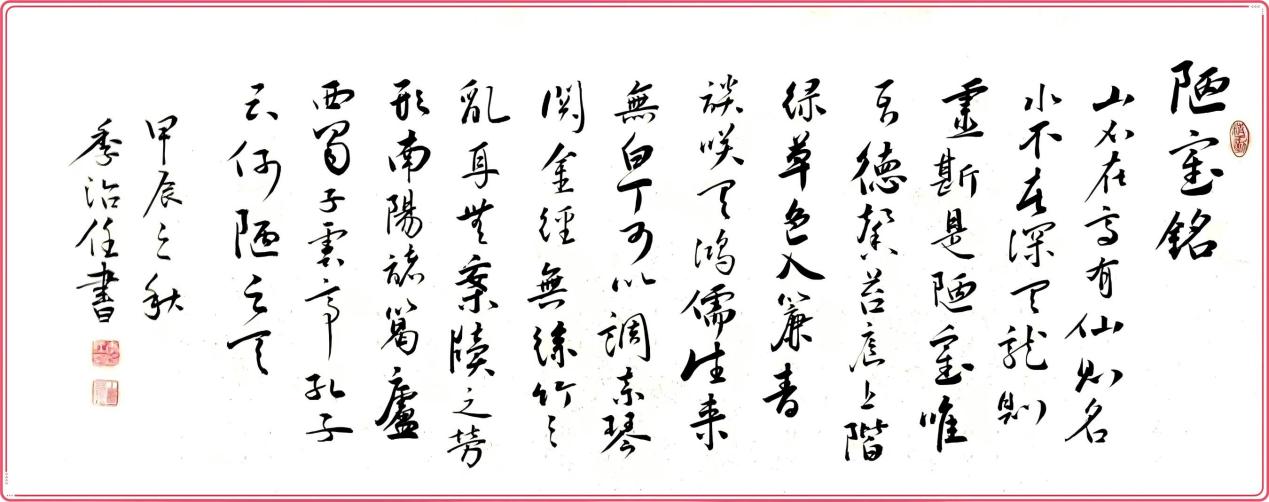 陋室銘
山不在高有仙則名
水不在深有龍則
靈斯是陋室唯
吾德馨苔痕上階
緑草色入簾青
談咲有鴻儒往来
無白丁可以調素琴
閲金經無絲竹之
亂耳無案牘之勞
形南陽諸葛廬
西蜀子雲亭孔子
云何陋之有
甲辰之秋
季治任書